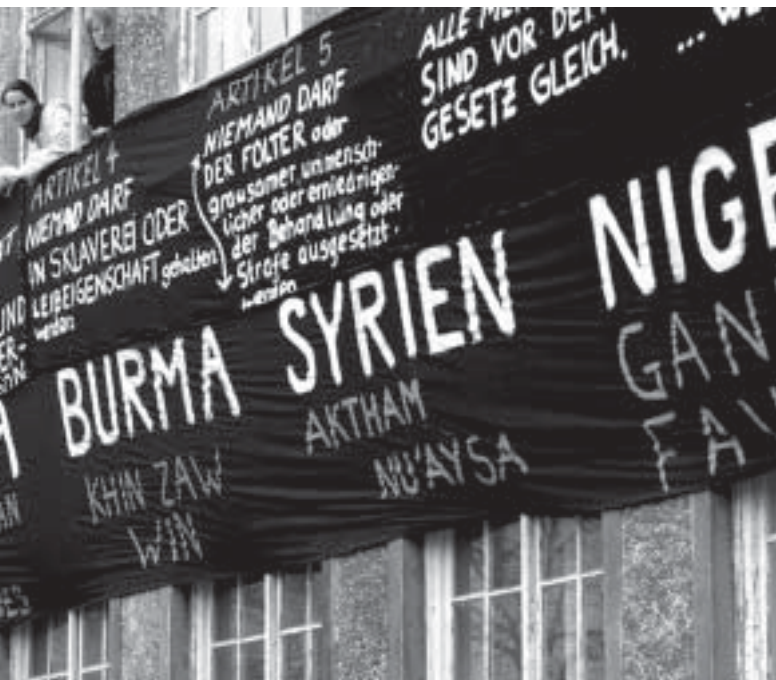 ET
UND
ER-
ARTIKEL 4
NIEMAD DARF
IN SKLAVEREI ODER
LEIBEIGENSCHAFT gehalten
werden
ARTIKEL 5
NIEMAND DARF
DER FOLTER oder
grausamer unmensch-
licher oder erniedrigen-
der Behandlung oder
Strafe ausgesetzt
werden
ALLE
SIND VOR DEM
GESETZ GLEICH.
...
A
BURMA
KHIN ZAW
WIN
SYRIEN
AKTHAM
NU'AYSA
NIGE
GAN
FA
AN
ES